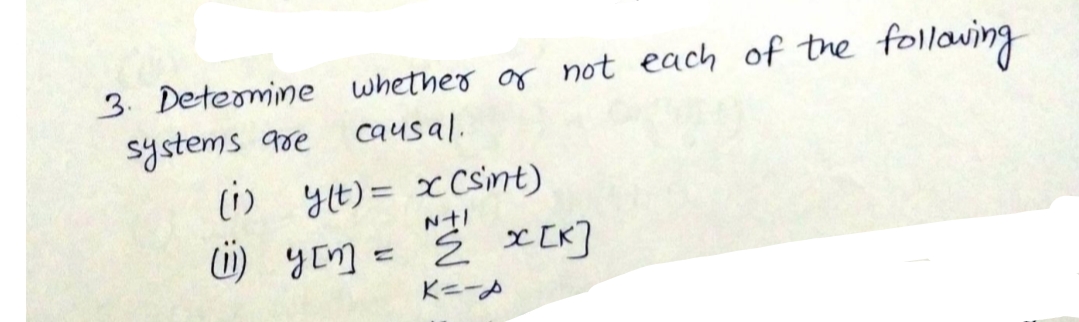 3. Determine whether or not each of the following
systems are causal.
(i) y(t) = x(sint)
(ii) y[n] = N+1 Σ K=-∞ x[K]